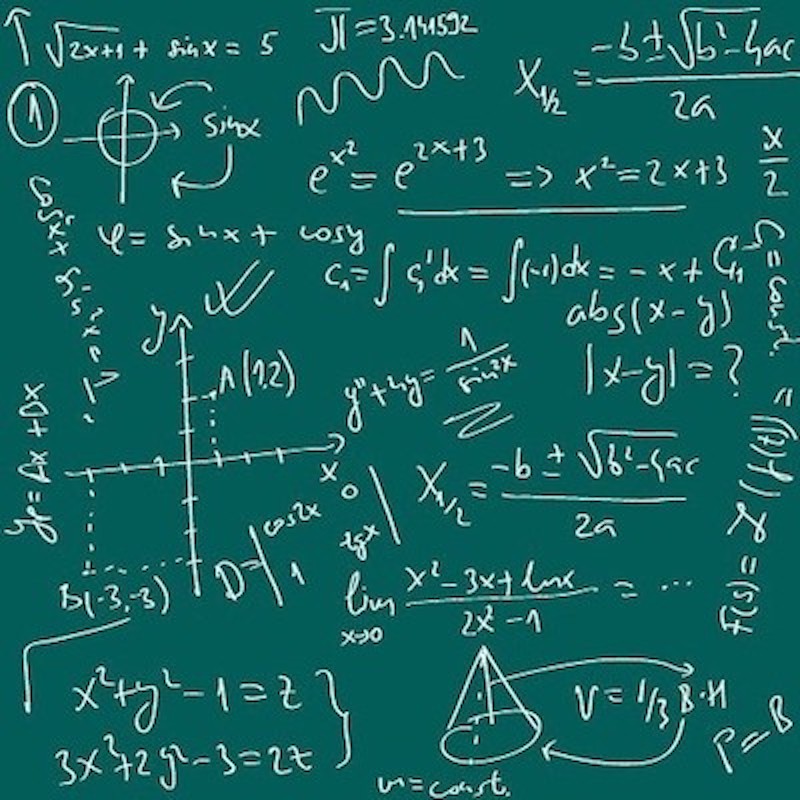 √2x+1 + sinx = 5
π = 3.141592
x₁/₂ = -b ± √b²-4ac / 2a
1
sinx
e^x² = e^2x+3 => x² = 2x+3
x/2
cos²x + sin²x = 1
φ = sinx + cosy
C₁ = ∫ C₁'dx = ∫(-1)dx = -x + C₁₁
C₁ = const.
abs(x-y)
|x-y| = ?
y
A(1,2)
y" + 4y = 1 / sin²x
x
B(-3,-3)
D = | cos2x 0
1 tgx |
x₁/₂ = -b ± √b²-4ac / 2a
lim x→0 x²-3x+lnx / 2x²-1 = ...
x²+y²-1 = z
3x³+2y²-3 = 2z
V = 1/3 B·H
P = B
m = const.